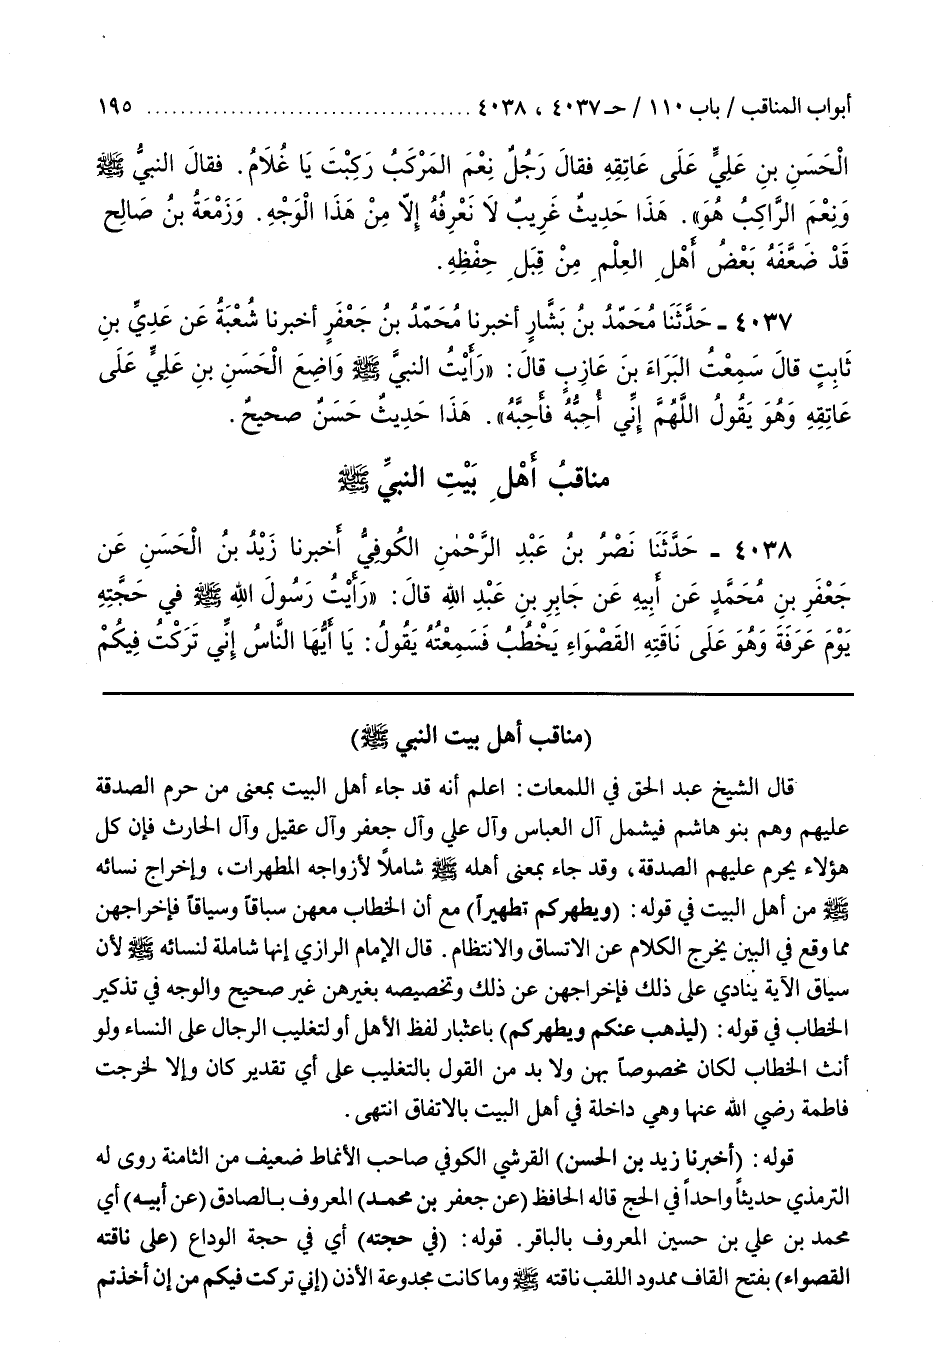 أبواب المناقب / باب ١١٠ / حـ ٤٠٣٧ ، ٤٠٣٨ ..................................... ١٩٥
الْحَسَنِ بنِ عَلِيٍّ عَلَى عَاتِقِهِ فقالَ رَجُلٌ نِعْمَ المَرْكَبُ رَكِبْتَ يَا غُلَامُ. فقالَ النبيُّ ﷺ
وَنِعْمَ الرَّاكِبُ هُوَ». هَذَا حَدِيثٌ غَرِيبٌ لَا نَعْرِفُهُ إِلّا مِنْ هَذَا الْوَجْهِ. وَزَمْعَةُ بنُ صَالِحٍ
قَدْ ضَعَّفَهُ بَعْضُ أَهْلِ العِلْمِ مِنْ قِبَلِ حِفْظِهِ.
٤٠٣٧ ـ حَدَّثَنَا مُحَمّدُ بنُ بَشَّارٍ أخبرنا مُحَمّدُ بنُ جَعْفَرٍ أخبرنا شُعْبَةُ عَن عَدِيِّ بنِ
ثَابِتٍ قالَ سَمِعْتُ البَرَاءَ بنَ عَازِبٍ قالَ: «رَأَيْتُ النبيَّ ﷺ وَاضِعَ الْحَسَنِ بنِ عَلِيٍّ عَلَى
عَاتِقِهِ وَهُوَ يَقُولُ اللَّهُمَّ إِنِّي أُحِبُّهُ فَأَحِبَّهُ». هَذَا حَدِيثٌ حَسَنٌ صحيحٌ.
مناقبُ أَهْلِ بَيْتِ النبيِّ ﷺ
٤٠٣٨ ـ حَدَّثَنَا نَصْرُ بنُ عَبْدِ الرَّحْمٰنِ الكُوفِيُّ أخبرنا زَيْدُ بنُ الْحَسَنِ عَن
جَعْفَرِ بنِ مُحَمَّدٍ عَن أَبِيهِ عَن جَابِرِ بنِ عَبْدِ اللهِ قالَ: «رَأَيْتُ رَسُولَ اللهِ ﷺ في حَجَّتِهِ
يَوْمَ عَرَفَةَ وَهُوَ عَلَى نَاقَتِهِ القَصْوَاءِ يَخْطُبُ فَسَمِعْتُهُ يَقُولُ: يَا أَيُّهَا النَّاسُ إِنِّي تَرَكْتُ فِيكُمْ
(مناقب أهل بيت النبي ﷺ)
قال الشيخ عبد الحق في اللمعات: اعلم أنه قد جاء أهل البيت بمعنى من حرم الصدقة
عليهم وهم بنو هاشم فيشمل آل العباس وآل علي وآل جعفر وآل عقيل وآل الحارث فإن كل
هؤلاء يحرم عليهم الصدقة، وقد جاء بمعنى أهله ﷺ شاملاً لأزواجه المطهرات، وإخراج نسائه
ﷺ من أهل البيت في قوله: (ويطهركم تطهيراً) مع أن الخطاب معهن سباقاً وسياقاً فإخراجهن
مما وقع في البين يخرج الكلام عن الاتساق والانتظام. قال الإمام الرازي إنها شاملة لنسائه ﷺ لأن
سياق الآية ينادي على ذلك فإخراجهن عن ذلك وتخصيصه بغيرهن غير صحيح والوجه في تذكير
الخطاب في قوله: (ليذهب عنكم ويطهركم) باعتبار لفظ الأهل أو لتغليب الرجال على النساء ولو
أنث الخطاب لكان مخصوصاً بهن ولا بد من القول بالتغليب على أي تقدير كان وإلا لخرجت
فاطمة رضي الله عنها وهي داخلة في أهل البيت بالاتفاق انتهى.
قوله: (أخبرنا زيد بن الحسن) القرشي الكوفي صاحب الأنماط ضعيف من الثامنة روى له
الترمذي حديثاً واحداً في الحج قاله الحافظ (عن جعفر بن محمد) المعروف بالصادق (عن أبيه) أي
محمد بن علي بن حسين المعروف بالباقر. قوله: (في حجته) أي في حجة الوداع (على ناقته
القصواء) بفتح القاف ممدود اللقب ناقته ﷺ وما كانت مجدوعة الأذن (إني تركت فيكم من إن أخذتم